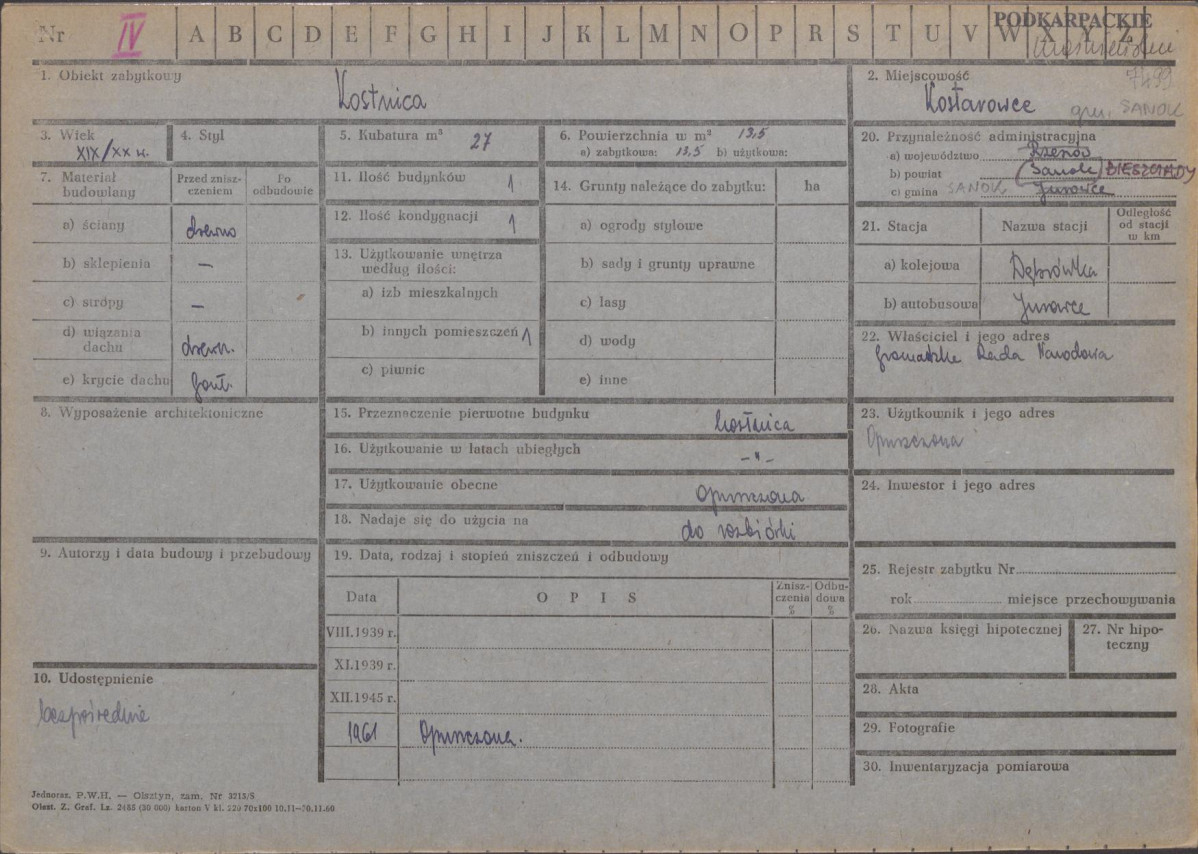 Nr IV A B C D E F G H I J K L M N O P R S T U V W X Y Z
PODKARPACKIE
7499
1. Obiekt zabytkowy
Kostnica
2. Miejscowość
Kostarowce gm. SANOK
3. Wiek
XIX/XX w.
4. Styl
5. Kubatura m³ 27
6. Powierzchnia w m² 13,5
a) zabytkowa: 13,5 b) użytkowa:
20. Przynależność administracyjna
a) województwo Rzeszów
b) powiat Sanok BIESZCZADY
c) gmina SANOK Jurowce
7. Materiał budowlany
Przed zniszczeniem
Po odbudowie
a) ściany drewno
b) sklepienia —
c) stropy —
d) wiązania dachu drewn.
e) krycie dachu gont.
11. Ilość budynków 1
12. Ilość kondygnacji 1
13. Użytkowanie wnętrza
według ilości:
a) izb mieszkalnych
b) innych pomieszczeń 1
c) piwnic
14. Grunty należące do zabytku: ha
a) ogrody stylowe
b) sady i grunty uprawne
c) lasy
d) wody
e) inne
21. Stacja
Nazwa stacji
Odległość
od stacji
w km
a) kolejowa Dąbrówka
b) autobusowa Jurowce
22. Właściciel i jego adres
Gromadzka Rada Narodowa
8. Wyposażenie architektoniczne
15. Przeznaczenie pierwotne budynku kostnica
16. Użytkowanie w latach ubiegłych -"-
17. Użytkowanie obecne Opuszczona
18. Nadaje się do użycia na do rozbiórki
23. Użytkownik i jego adres
Opuszczona
24. Inwestor i jego adres
9. Autorzy i data budowy i przebudowy
19. Data, rodzaj i stopień zniszczeń i odbudowy
Data
OPIS
Zniszczenia
%
Odbudowa
%
VIII.1939 r.
XI.1939 r.
XII.1945 r.
1961 Opuszczona.
25. Rejestr zabytku Nr
rok miejsce przechowywania
26. Nazwa księgi hipotecznej
27. Nr hipoteczny
10. Udostępnienie
bezpośrednie
28. Akta
29. Fotografie
30. Inwentaryzacja pomiarowa
Jednoraz. P.W.H. — Olsztyn, zam. Nr 3215/S
Olszt. Z. Graf. Lz. 2485 (30 000) karton V kl. 220 70x100 10.11—30.11.60